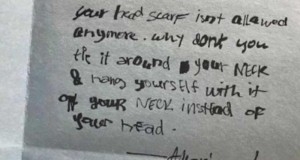 your head scarf isnt allowed
anymore. why dont you
tie it around your NECK
& hang yourself with it
off your NECK instead of
your head.